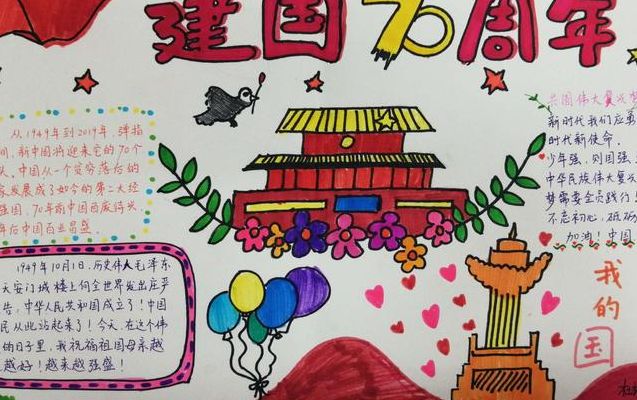 建国70周年
从1949年到2019年，弹指
间，新中国将迎来它的70个
头，中国从一个贫穷落后的
家发展成了如今的第二大经
强国，70年前中国百废待兴
年后中国百业昌盛
1949年10月1日，历史伟人毛泽东
天安门城楼上向全世界发出庄严
告，中华人民共和国成立了！中国
民从此站起来了！今天，在这个伟
的日子里，我祝福祖国母亲越
越好！越来越强盛！
共圆伟大复兴梦
新时代我们应勇
时代新使命，
少年强，则国强
中华民族伟大复兴
梦需要全员践行
不忘初心，砥砺
加油！中国
我的国